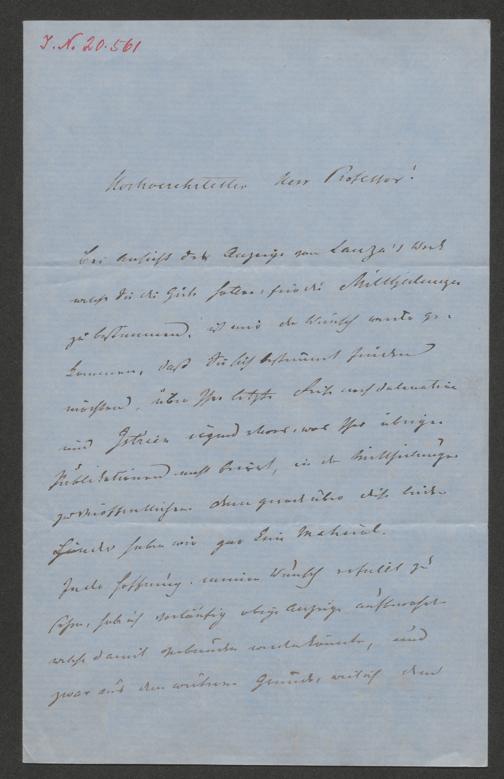 I. N. 20.561
Hochverehrtester Herr Professor!
Bei Ansicht der Anzeige von Lanza's Werk
welche Sie die Güte hatten, für die Mittheilungen
zu bestimmen, ist mir der Wunsch wieder ge-
kommen, daß Sie sich bestimmt finden
möchten, über Ihre letzte Reise nach Dalmatien
und Istrien irgend etwas, was Ihre übrigen
Publikationen nicht , in den Mittheilungen
zu veröffentlichen. Denn gerade über diese beiden
Länder haben wir gar kein Material.
In der Hoffnung, meinen Wunsch erfüllt zu
sehen, hab ich vorläufig obige Anzeige aufbewahrt
welche damit verbunden werden könnte, und
zwar aus dem weiteren Grunde, weil ich dem